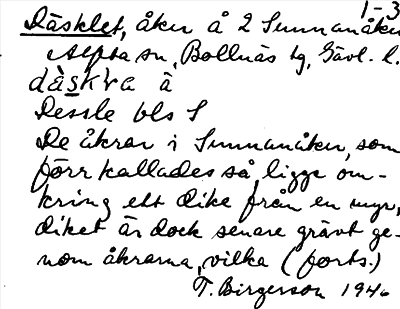 1-3
Däsklet, åker å 2 Sunnanåker
Alfta sn, Bollnäs tg, Gävl. l.
dàskra å
Dessle bls S
De åkrar i Sunnanåker, som
förr kallades så, ligga om-
kring ett dike från en myr,
diket är dock senare grävt ge-
nom åkrarna, vilka (forts.)
T. Birgerson 1946